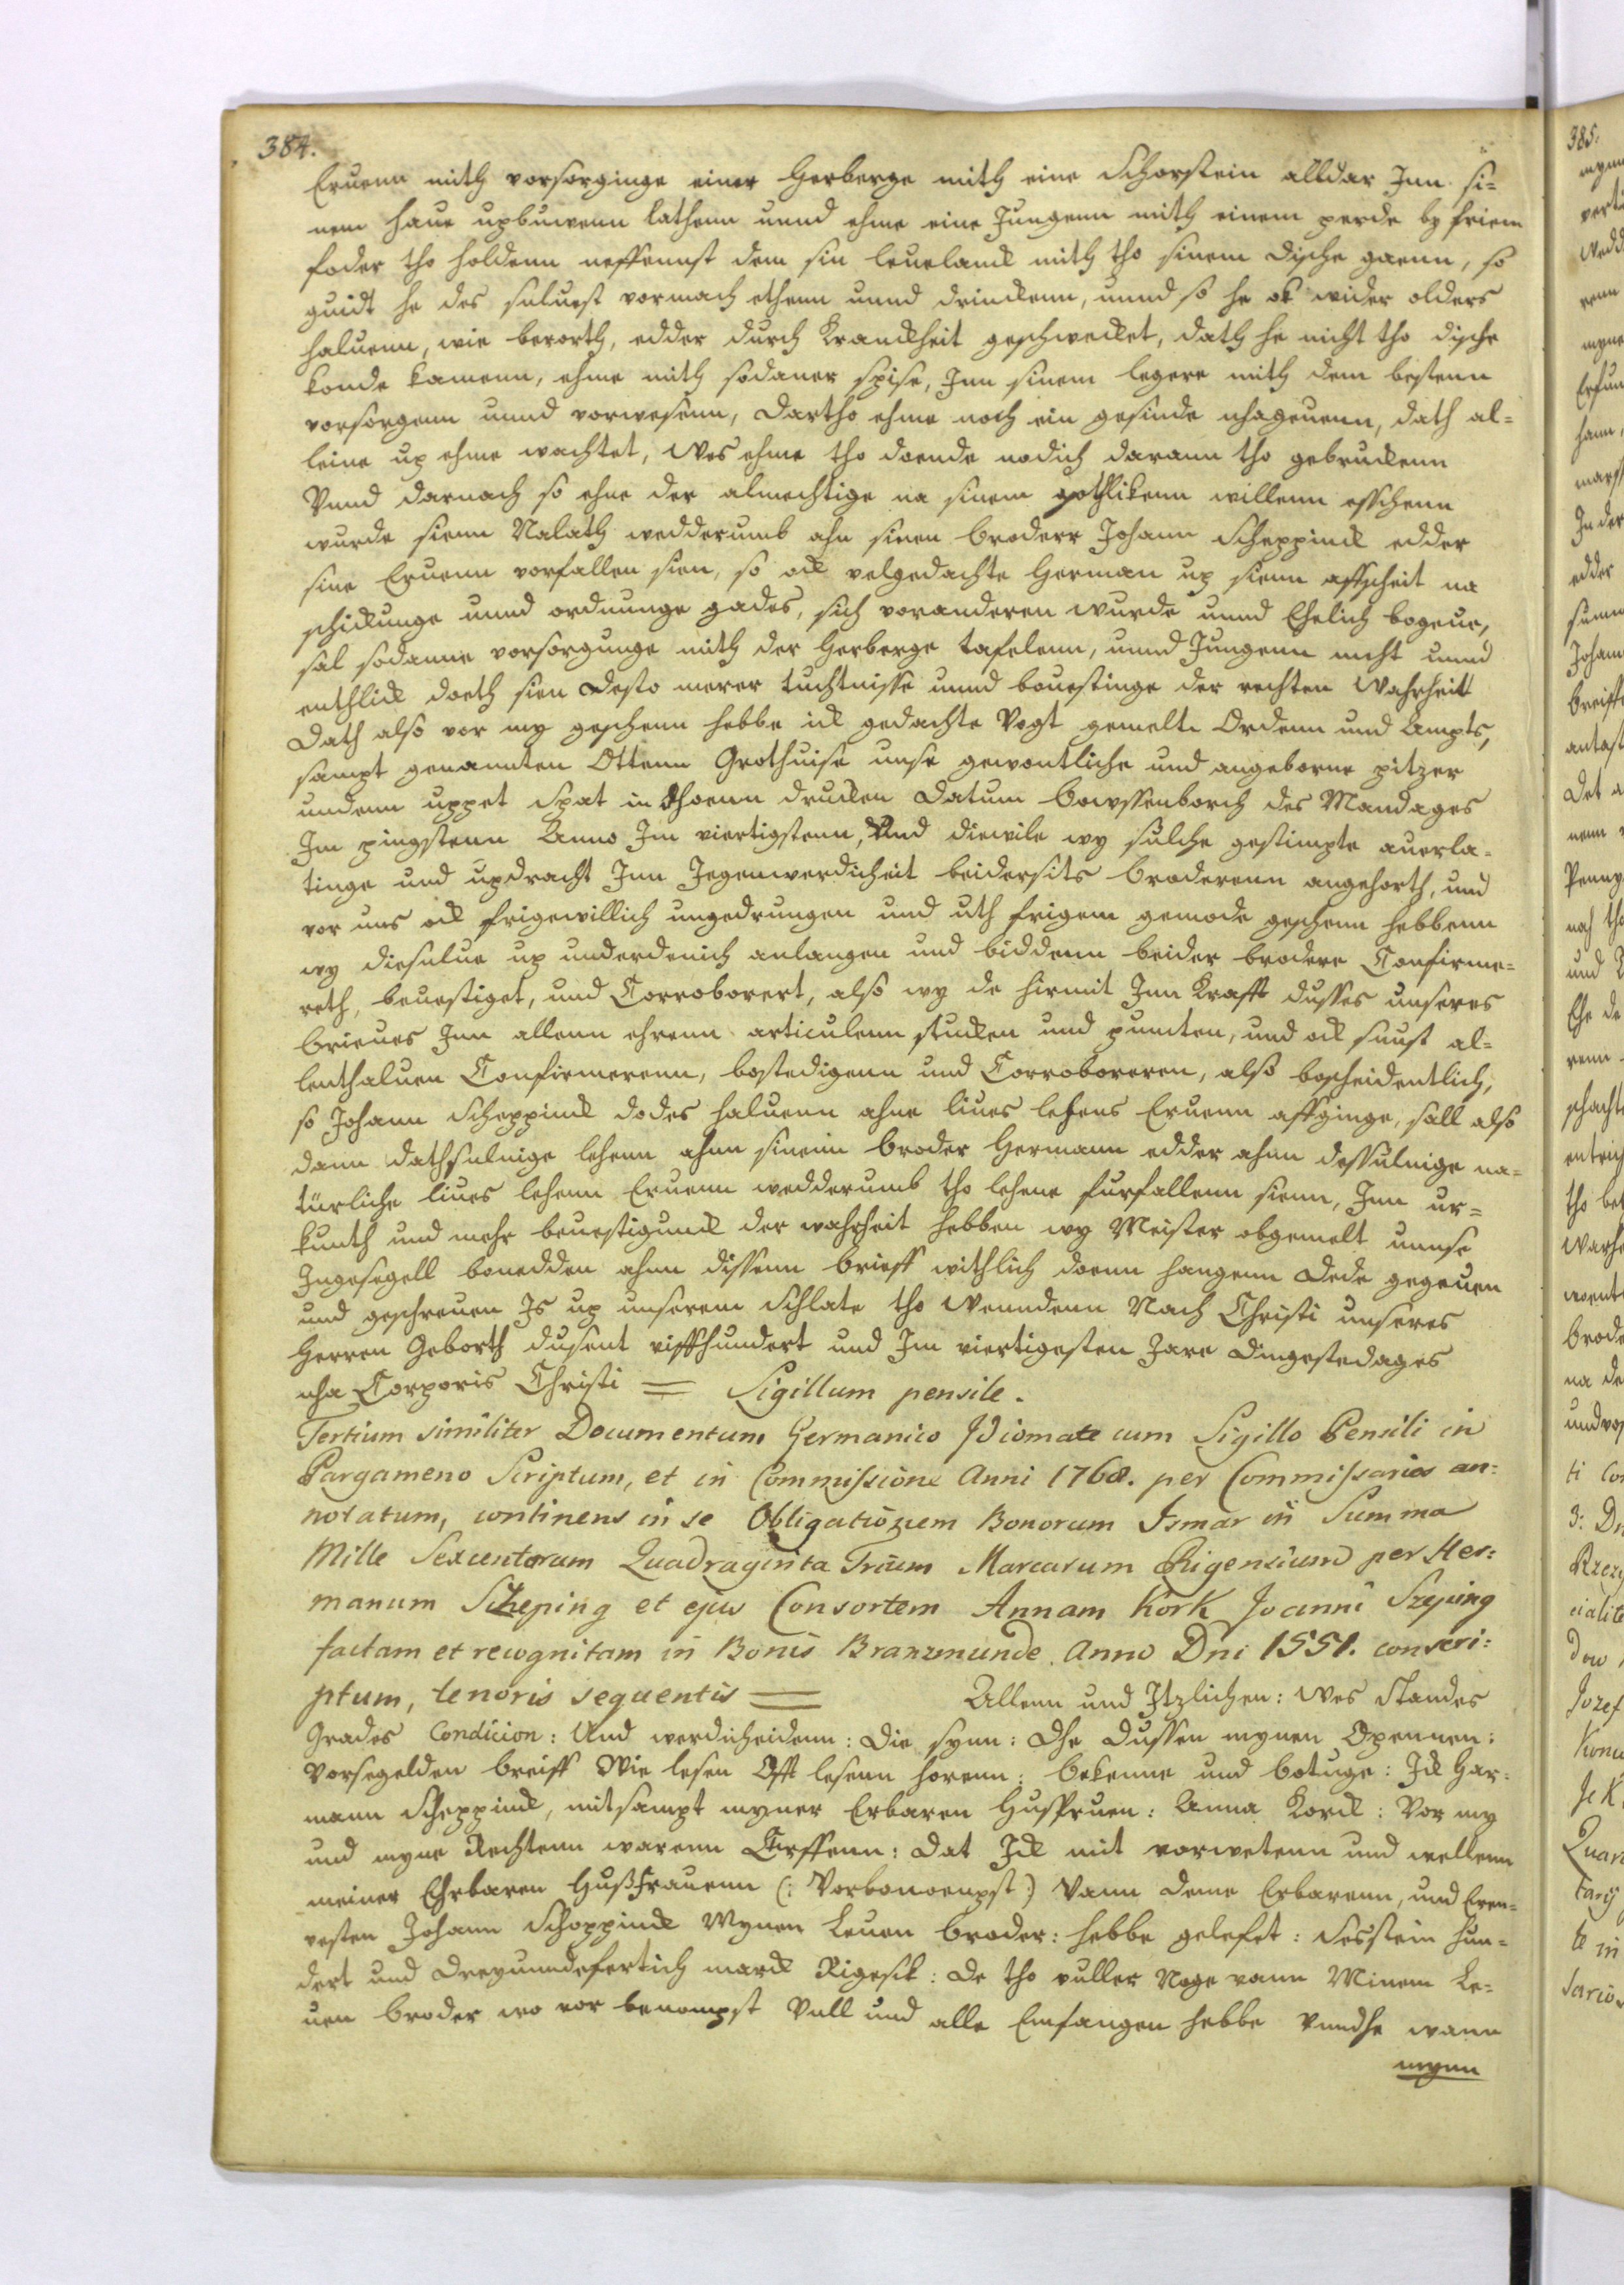 384.
Eruenn mith vorsorginge einer Herberge mith eine Schorstein alldar Inn si=
nem haue upbuwenn lathenn unnd ehme eine Jungenn mith einem perde by friem
foder tho holdenn neffennst dem sin leuelanck mith tho sinem dische gaenn, so
guidt he des suluest vormach ethenn unnd drinckenn, unnd so he ok wider olders
haluenn, wie berorth, edder durch Kranckheit geschwecket, dath he nicht tho dische
konde kamenn, ehme mith sodaner spise, Inn sinem legere mith dem bestenn
vorsorgenn unnd vorwesenn, dartho ehme noch ein gesinde uhageuenn, dath al=
leine up ehme wachtet, Wes ehme tho doende nodich darann tho gebruckenn
Vnnd darnach so ehne der almechtige na sinem gothlikenn willenn esschenn
wurde sienn Nalath wedderumb ahn sinen broderr Johann Scheppinck edder
sine Eruenn vorfallen sien, so ock velgedachte Herman up sienn affscheit na
schickunge unnd ordnunge gades, sich voranderen wurde unnd Ehelich bogeue,
sal sodanne vorsorgunge mith der Herberge tafelenn, unnd Jungenn nicht unnd
enthlick doeth sien Desto merer tuchtnisse unnd bouestinge der rechten Wahrheit
Dath also vor my geschenn hebbe ick gedachte Vogt gemelte Ordenn und Ampts,
sampt genannten Ottenn Grothuise unse gewontliche und angeborne pitzer
undenn uppet Spat in thoenn drucken Datum bowssenborch des Mandages
Im pingstenn Anno Im viertigstenn, Und diewile wy sulche gestimpte auerla=
tinge und updracht Inn Jegenwerdicheit beidersits broderenn angehorth, und
vor uns ock frigewillich ungedrungen und uth frigem gemode geschenn hebbenn
wy diesulue up underdenich anlangen und biddenn beider brodere Confirme=
reth, beuestiget, und Corroborert, also wy de hirmit Inn Krafft dusses unseres
brieues Inn allenn ehrenn articulenn stucken und puncten, und ock sunst al=
lenthaluen Confirmerenn, bostedigenn und Corroboreren, also bescheidentlich,
so Johann Scheppinck dodes haluenn ahne liues lehens Eruenn affginge, sall also
dann dathsuluige lehenn ahnn sinenn broder Hermann edder ahnn dessuluige na=
türliche liues lehenn Eruenn wedderumb tho lehene furfallenn sienn, Inn ur=
kunth und mehr beuestigunck der wahrheit hebben wy Meister obgemelt unnse
Ingesegell benedden ahnn dissenn brieff withlich doenn hangenn Dede gegeuen
und geschreuen Is up unserem Schlate tho Wenndenn Nach Christi unseres
Herren Geborth dusent viffhundert und Im viertigesten Jare Dingestedages
nha Corporis Christi = Sigillum pensile.
Tertium similiter Documentum Germanico Idiomate cum Sigillo Pensili in
Pargameno Scriptum, et in Commissione Anni 1768. per Commissarios an=
notatum, continens in se Obligationem Bonorum Ismar in Summa
Mille Sexcentorum Quadraginta Trium Marcarum Rigensium per Her=
manum Szeping et ejus Consortem Annam Kork Joanni Szeping
factam et recognitam in Bonis Branzmunde Anno Dni 1551. conscri=
ptum, tenoris sequentis = Allenn und Itzlichen: Wes Standes
Grades Condicion: Und werdicheidenn: Die synn: Dhe Dussen mynen Opennen:
Vorsegelden breiff Wie lesen Offt lesenn horenn: bekenne und botuge: Ick Har=
mann Scheppinck, mitsampt myner Erbaren Husfruen: Anna Korck: Vor my
und myne Rechtenn warenn Erffenn: Dat Ick mit vorwetenn und wellenn
meiner Ehrbaren Hußfrauenn (: Vorbonoempst:) Vann deme Erbarenn, und Eren=
vesten Johann Schoppinck Mynen Leuen broder: hebbe gelefet: Sesstein hun=
dert und Dreyunndefertich marck Rigesck: De tho vuller Noge vann Minem Le=
uen broder wo vor benompst Vull und alle Emfangen hebbe Vnndhe wann
mynn